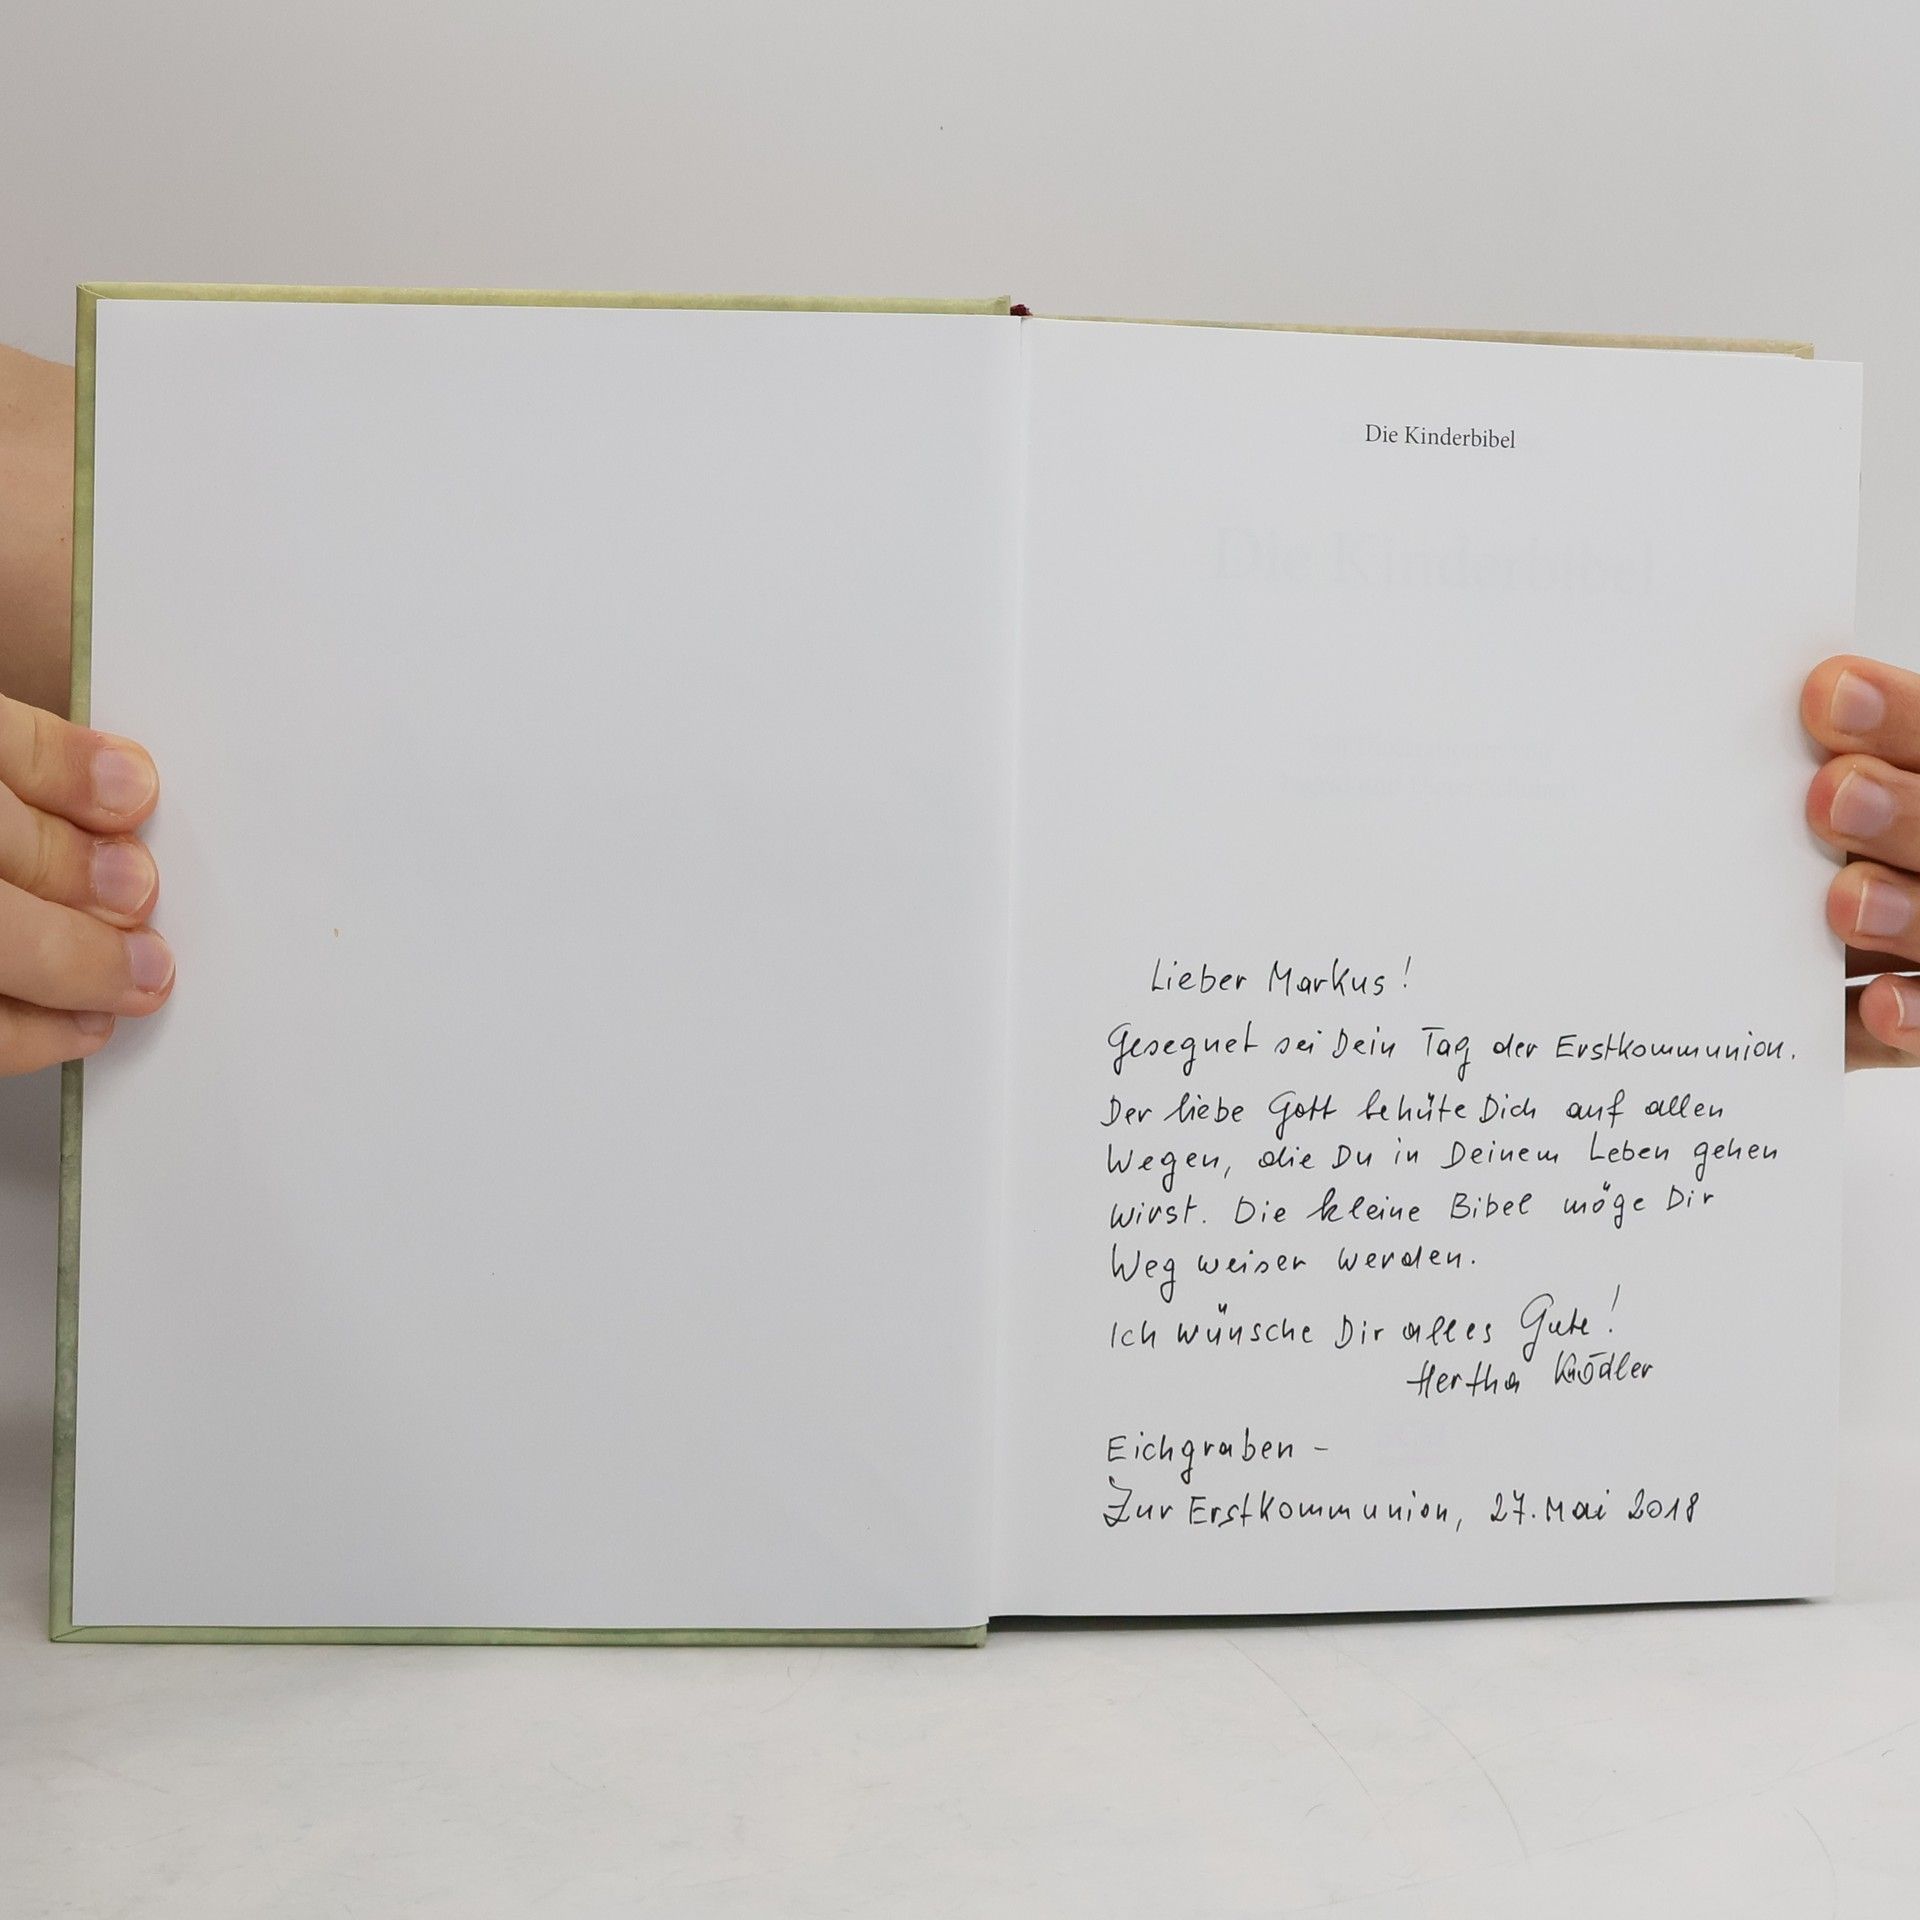 Die Kinderbibel
Die Kinderbibel
Lieber Markus!
Gesegnet sei Dein Tag der Erstkommunion.
Der liebe Gott behüte Dich auf allen
Wegen, die Du in Deinem Leben gehen
wirst. Die kleine Bibel möge Dir
Weg weiser werden.
Ich wünsche Dir alles Gute!
Hertha Knödler
Eichgraben -
Zur Erstkommunion, 27. Mai 2018